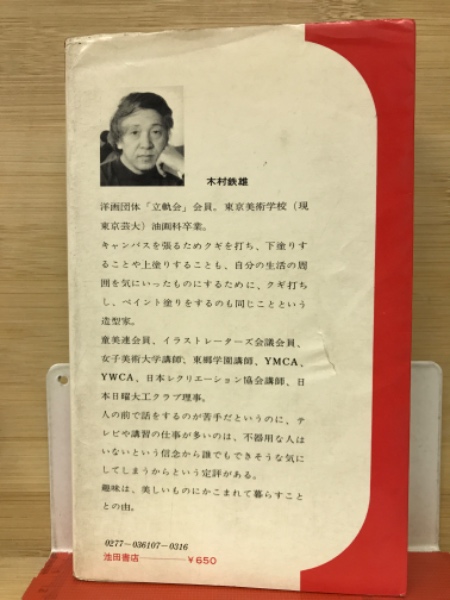 木村鉄雄
洋画団体「立軌会」会員。東京美術学校（現
東京芸大）油画科卒業。
キャンバスを張るためクギを打ち、下塗りす
ることや上塗りすることも、自分の生活の周
囲を気にいったものにするために、クギ打ち
し、ペイント塗りをするのも同じことという
造型家。
童美連会員、イラストレーターズ会議会員、
女子美術大学講師、東郷学園講師、YMCA、
YWCA、日本レクリエーション協会講師、日
本日曜大工クラブ理事。
人の前で話をするのが苦手だというのに、テ
レビや講習の仕事が多いのは、不器用な人は
いないという信念から誰でもできそうな気に
してしまうからという定評がある。
趣味は、美しいものにかこまれて暮らすこと
との由。
0277—036107—0316
池田書店———￥650